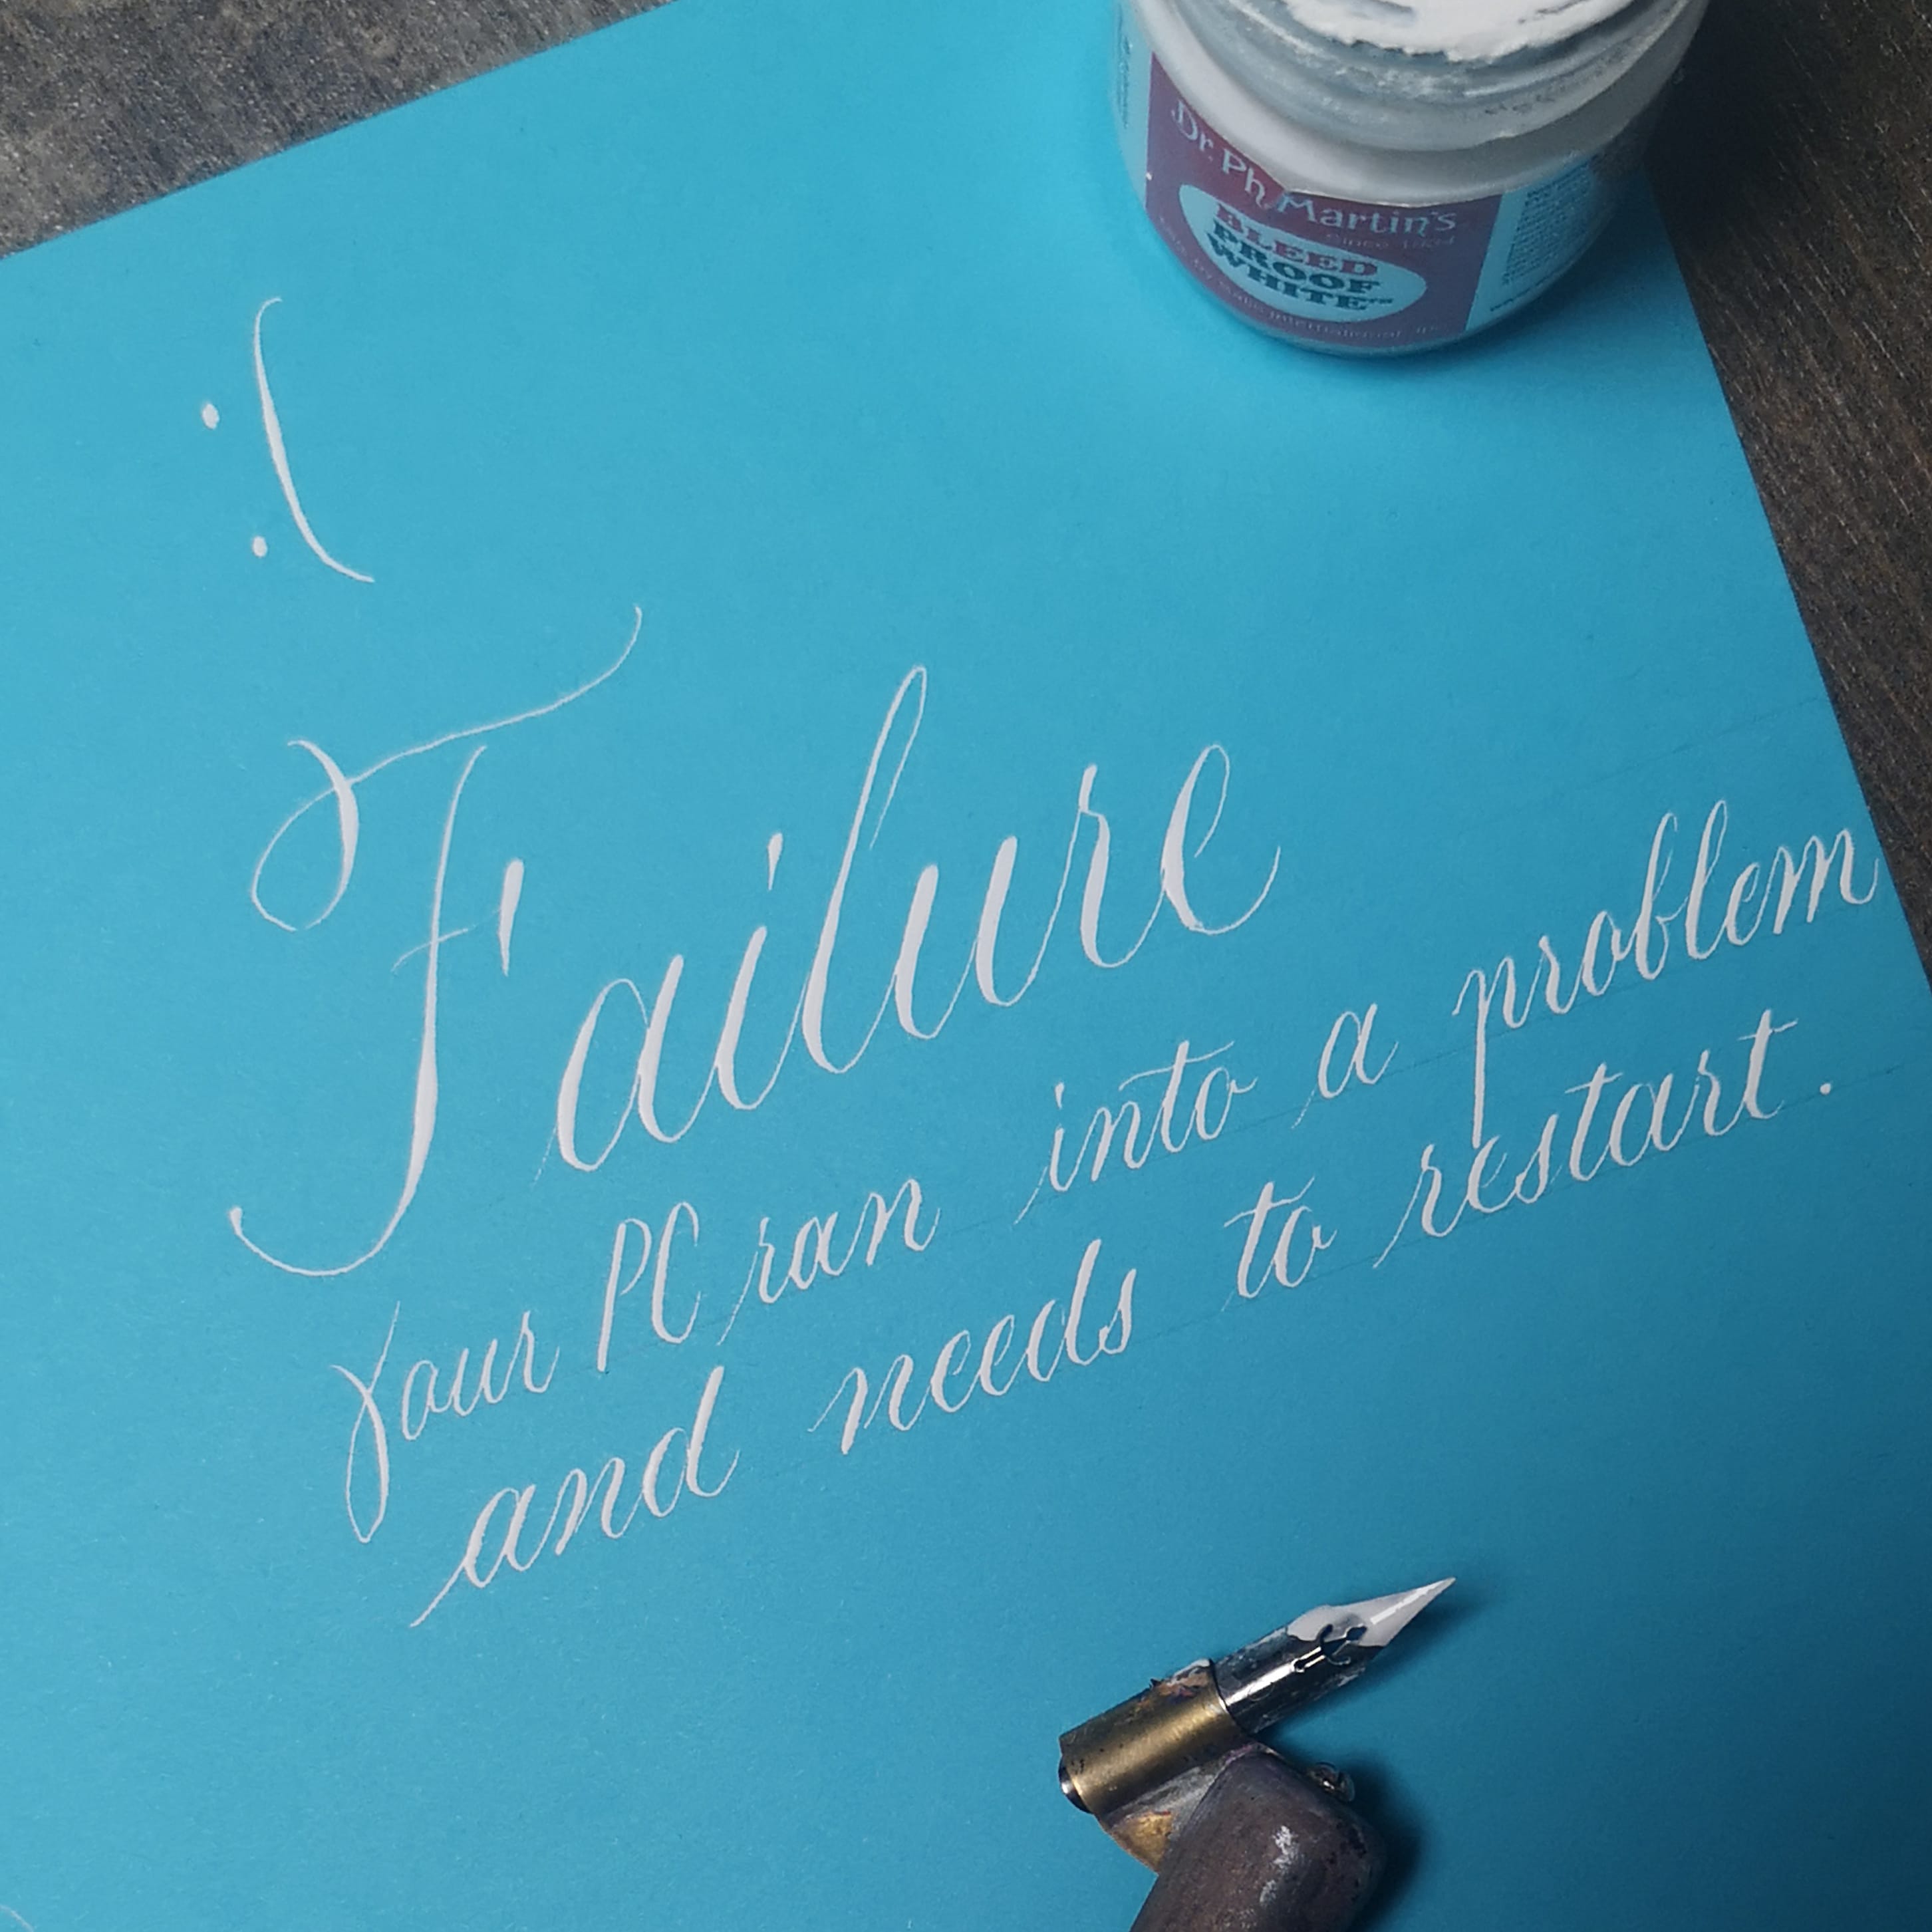 Dr. Ph. Martin's
Since 1934
BLEED
PROOF
WHITE™
:(
Failure
Your PC ran into a problem
and needs to restart.